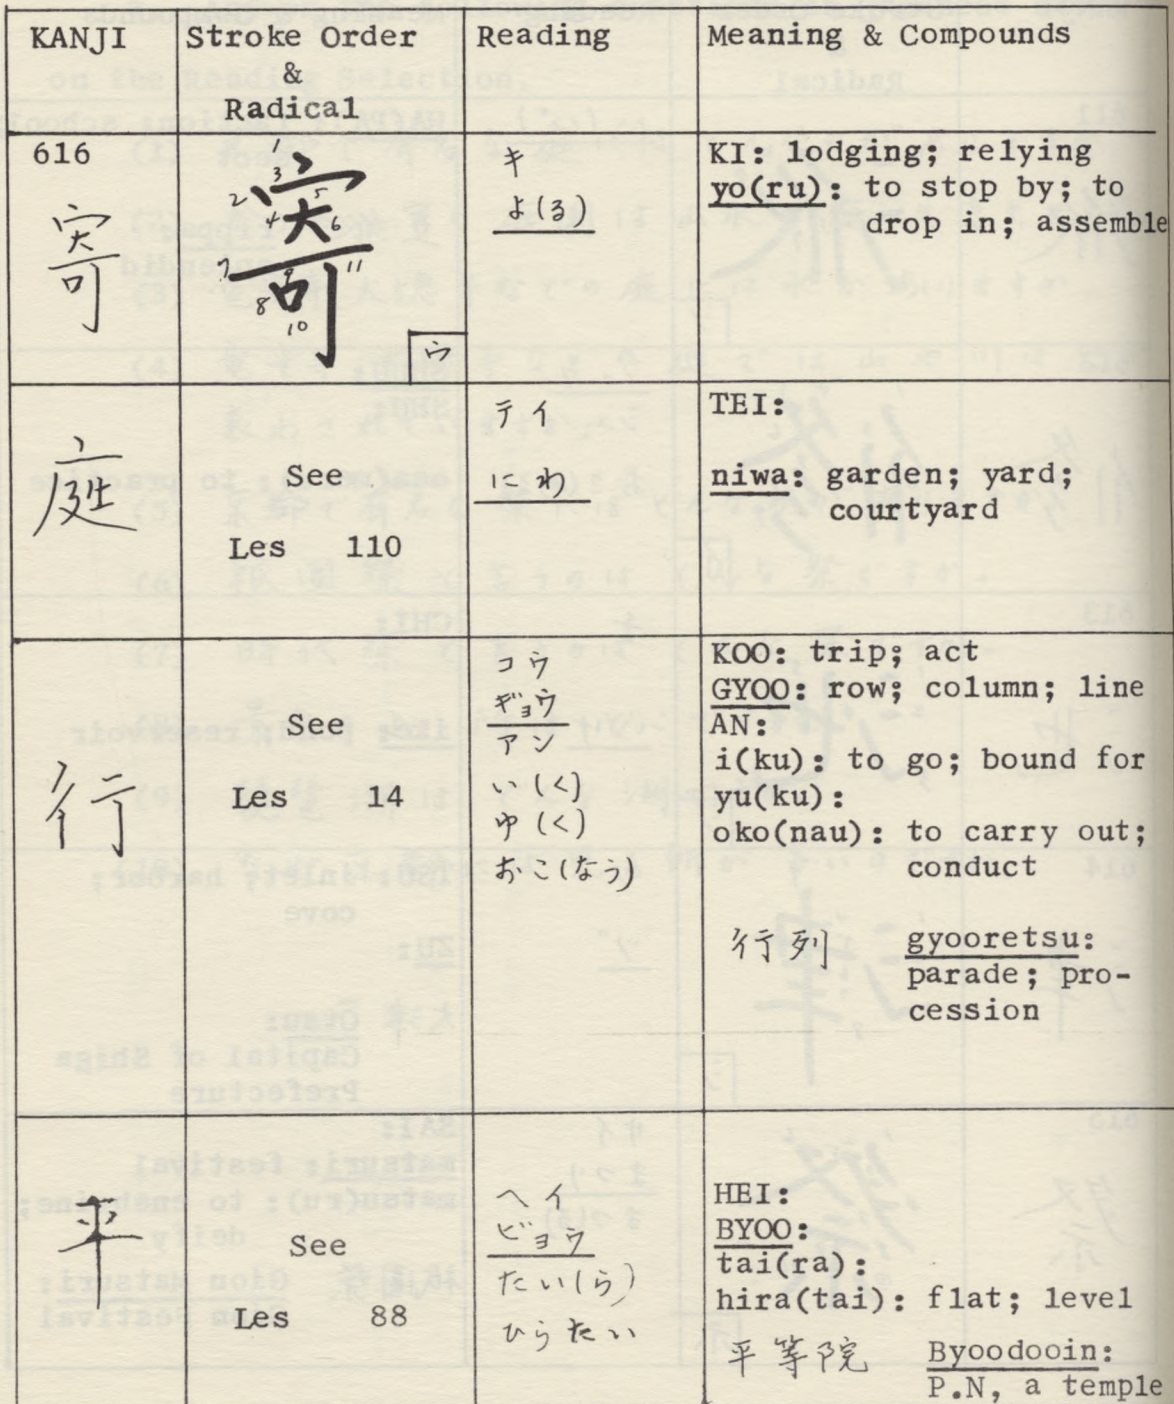 KANJI Stroke Order Reading Meaning & Compounds
&
Radical
616
寄
1 2 3 4 5 6 7 8 9 10 11
寄
宀
キ
よ(る)
KI: lodging; relying
yo(ru): to stop by; to
drop in; assemble
庭
See
Les 110
テイ
にわ
TEI:
niwa: garden; yard;
courtyard
行
See
Les 14
コウ
ギョウ
アン
い(く)
ゆ(く)
おこ(なう)
KOO: trip; act
GYOO: row; column; line
AN:
i(ku): to go; bound for
yu(ku):
oko(nau): to carry out;
conduct
行列 gyooretsu:
parade; pro-
cession
平
See
Les 88
ヘイ
ビョウ
たい(ら)
ひらたい
HEI:
BYOO:
tai(ra):
hira(tai): flat; level
平等院 Byoodooin:
P.N, a temple